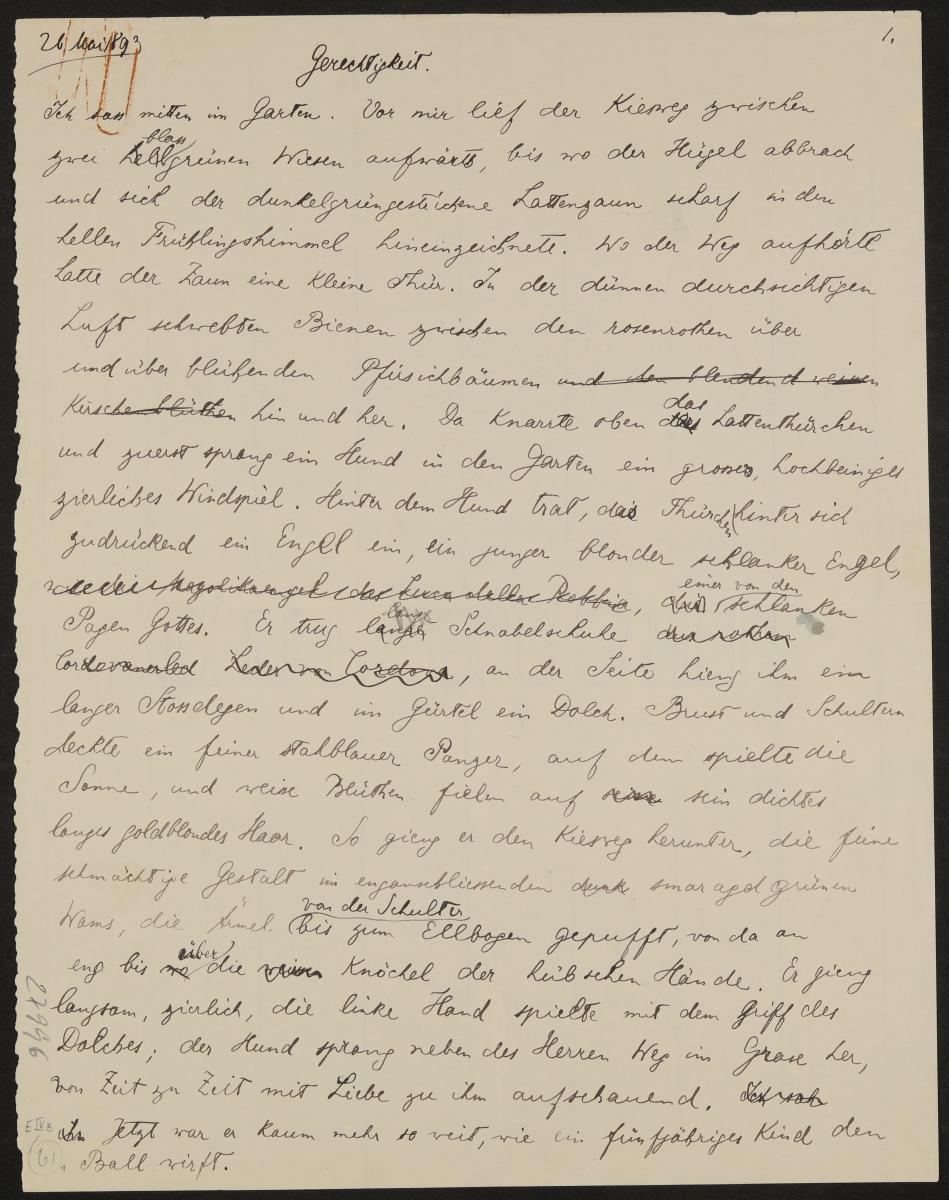 26 Mai 893
1.
Gerechtigkeit.
Ich sass mitten im Garten. Vor mir lief der Kiesweg zwischen
blass
zwei hellgrünen Wiesen aufwärts, bis wo der Hügel abbrach
und sich der dunkelgrüngestrichene Lattenzaun scharf in den
hellen Frühlingshimmel hineinzeichnete. Wo der Weg aufhörte
hatte der Zaun eine kleine Thür. In der dünnen durchsichtigen
Luft schwebten Bienen zwischen den rosenrothen über
und über blühenden Pfirsichbäumen und den blendend weissen
Kirschenblüthen hin und her. Da knarrte oben das Lattenthürchen
das
und zuerst sprang ein Hund in den Garten ein grosses, hochbeiniges
zierliches Windspiel. Hinter dem Hund trat, das Thürchen hinter sich
zudrückend ein Engel ein, ein junger blonder schlanker Engel,
wie die Majolikaengel des Luca della Robbia, einer von den schlanken
Pagen Gottes. Er trug lange Schnabelschuhe aus rothem
lange
Cordovanerled Leder von Cordova, an der Seite hieng ihm ein
langer Stossdegen und im Gürtel ein Dolch. Brust und Schultern
deckte ein feiner stahlblauer Panzer, auf dem spielte die
Sonne, und weise Blüthen fielen auf seine sein dichtes
langes goldblondes Haar. So gieng er den Kiesweg herunter, die feine
schmächtige Gestalt im enganschliessenden dunk smaragdgrünen
von der Schulter
Wams, die Ärmel bis zum Ellbogen gepufft, von da an
über
eng bis die weissen Knöchel der hübschen Hände. Er gieng
langsam, zierlich, die linke Hand spielte mit dem Griff des
Dolches; der Hund sprang neben des Herren Weg im Grase her,
von Zeit zu Zeit mit Liebe zu ihm aufschauend. Ich sah
Jetzt war er kaum mehr so weit, wie ein fünfjähriges Kind den
Ball wirft.
27996
E IV B